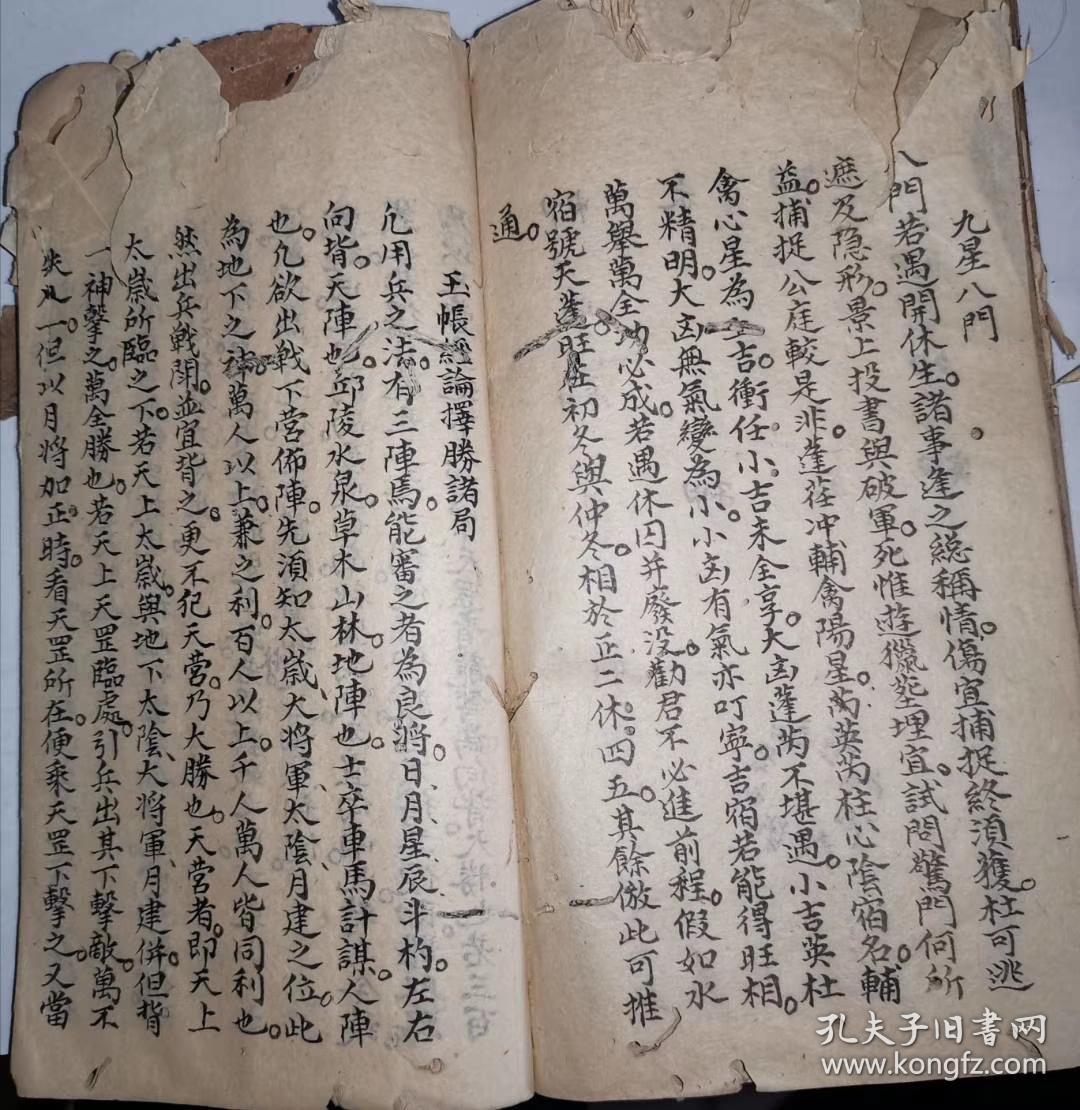 九星八門
八門若遇開休生。諸事逢之総稱情。傷宜捕捉終須獲。杜可逃
遮及隐形。景上投書與破軍。死惟遊獵塟埋宜。試問驚門何所
益。捕捉公庭較是非。蓬任冲輔禽陽星。芮英芮柱心陰宿名。輔
禽心星為上吉。衝任小吉未全享。大凶蓬芮不堪遇。小吉英柱
不精明。大凶無氣變為小。小凶有氣亦叮寧。吉宿若能得旺相。
萬舉萬全功必成。若遇休囚并廢没。勸君不必進前程。假如水
宿號天蓬。旺在初冬與仲冬。相於正二休。四五。其餘倣此可推
通。
玉帳經論擇勝諸局
凢用兵之法。有三陣焉能審之者為良將。日月星辰斗杓。左右
向背。天陣也。邱陵水泉。草木山林。地陣也士卒車馬計謀。人陣
也。凢欲出戰下营佈陣。先須知太歲、大将軍太陰、月建之位。此
為地下之神萬人以上。兼之利。百人以上。千人萬人皆同利也。
然出兵戰鬪。並宜背之。更不犯天营。乃大勝也。天营者。即天上
太歲所臨之下。若天上太歲。與地下太陰、大将軍、月建併。但背
一神擊之。萬全勝也。若天上天罡臨處。引兵出其下擊敵。萬不
失一。但以月将加正。時。看天罡所在。便乘天罡下擊之。又當
孔夫子旧書网
www.kongfz.com